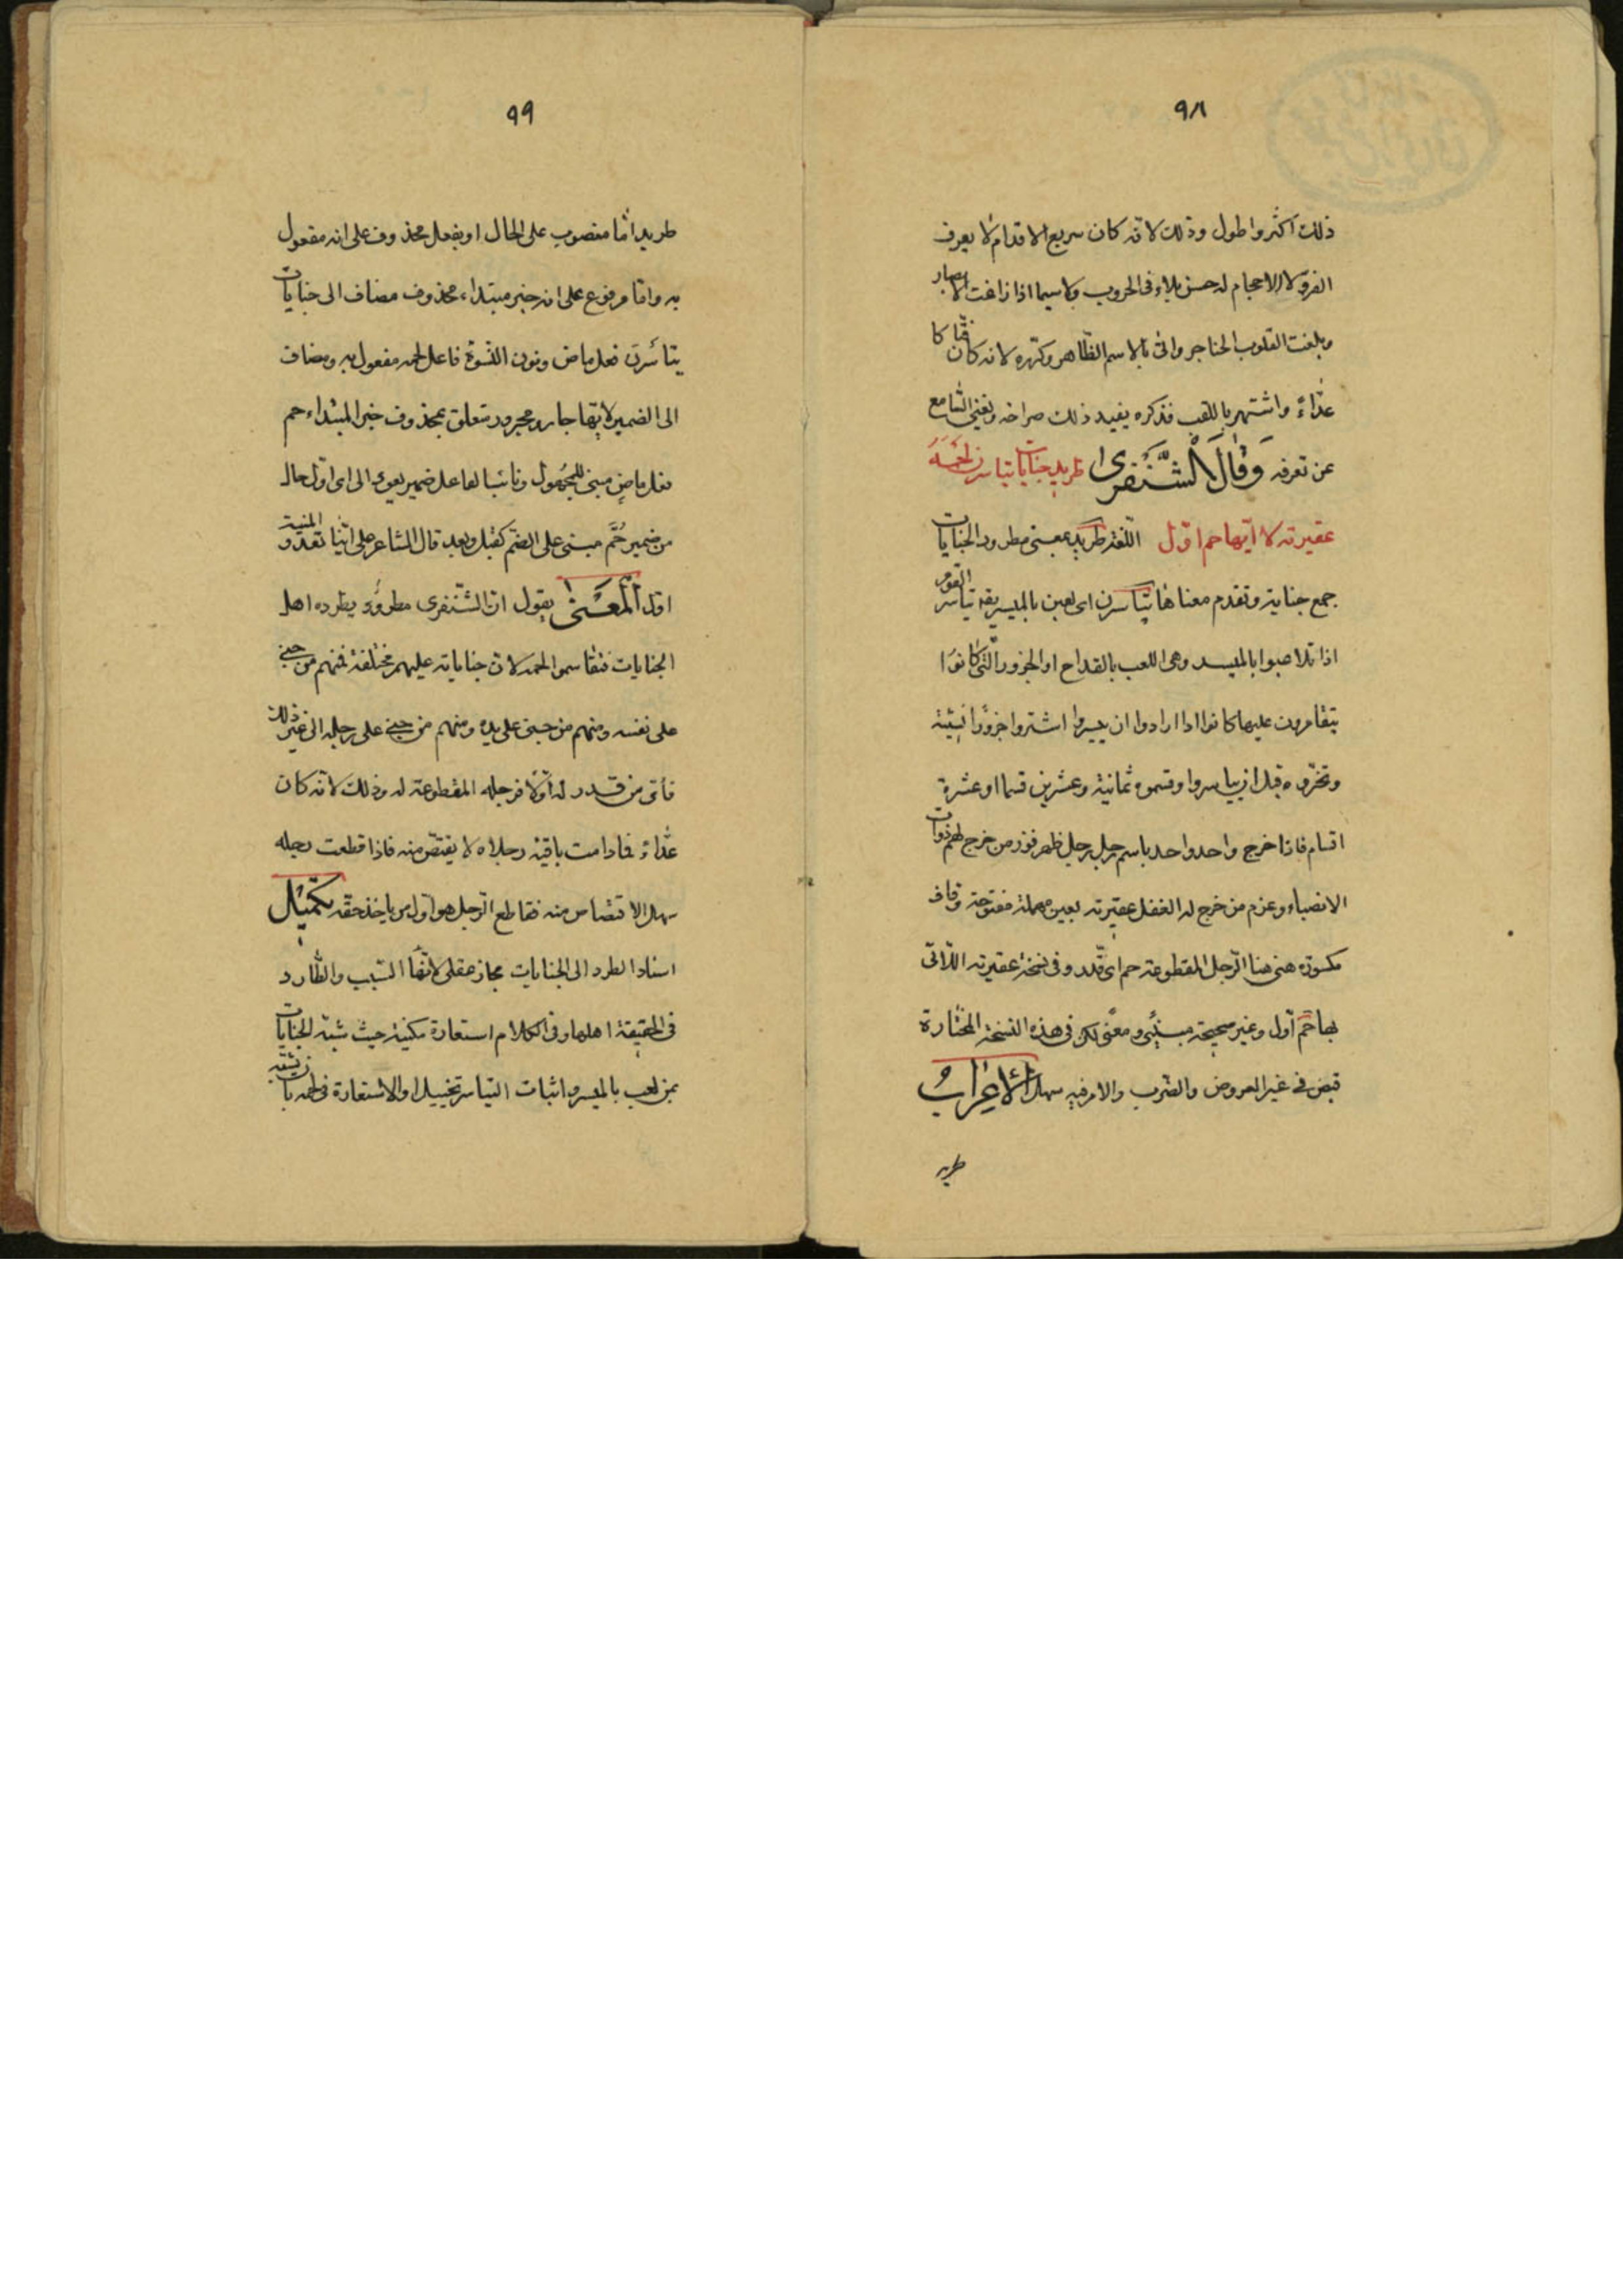 ٩٨
ذلك اكثر واطول وذلك لانه كان سريع الاقدام لا يعرف
الفرق لا الاحجام له حسن بلاء فى الحروب ولاسيما اذا زاغت الابصار
وبلغت القلوب الحناجر واتى بالاسم الظاهر وكرره لانه كان فتاكا
عدّاءً واشتهر باللقب فذكره يفيد ذلك صراحه ويغنى السامع
عن تعرفه وَقَالَ الشَّنْفَرى طريد جنايات تياسرن لحمه
عقيرته لايّها حم اوّل اللّغة طريد بمعنى مطرود الجنايات
جمع جناية وتقدم معناها تياسرن اى لعبن بالميسر يقه تياسر القوم
اذا تلاعبوا بالميسر وهى اللعب بالقداح او الجزور الّتى كانوا
يتقامرون عليها كانوا اذا ارادوا ان ييسروا اشتروا جزورًا نسيئة
ونحروه قبل ان يياسروا وقسموه ثمانية وعشرين قسما او عشرة
اقسام فاذا خرج واحد واحد باسم رجل رجل ظهر فوز من خرج لهم ذوات
الانصباء وغرم من خرج له الغفل عقيرته بعين مهملة مفتوحة وقاف
مكسوره هى هنا الرّجل المقطوعة حم اى قدّر وفى نسخة عقيرته اللّاتى
بها حُمّ اوّل وغير صحيحة مبنًى ومعنًى لكن فى هذه النسخة المختارة
قبض فى غير العروض والضرب والامر فيه سهل الْاِعْرَابُ
طريد
٩٩
طريد امّا منصوب على الحال او بفعل محذوف على انه مفعول
به وامّا مرفوع على انه خبر مبتداء محذوف مضاف الى جنايات
تياسرن فعل ماض ونون النّسوة فاعل لحمه مفعول به ومضاف
الى الضمير لايّها جار ومجرور متعلق بمحذوف خبر المبتداء حم
فعل ماض مبنى للمجهول ونائب الفاعل ضمير يعود الى اى اوّل حال
من ضمير حُمّ مبنى على الضمّ كقبل وبعد قال الشاعر على ايّنا تعدو المنية
اوّل اَلْمَعْنى يقول ان الشّنفرى مطرود يطرده اهل
الجنايات فتقاسموا لحمه لان جناياته عليهم مختلفة فمنهم من جنى
على نفسه ومنهم من جنى على يده ومنهم من جنى على رجله الى غير ذلك
فأىّ من قدر له اوّلا فرجله المقطوعة له وذلك لانّه كان
عدّاءً فمادامت باقية رجلاه لا يقتصّ منه فاذا قطعت رجله
سهل الاقتصاص منه فقاطع الرّجل هو اوّل من ياخذ حقّه تكميل
اسناد الطرد الى الجنايات مجاز عقلى لانها السّبب والطّارد
فى الحقيقة اهلها وفى الكلام استعارة مكنية حيث شبّه الجنايات
بمن لعب بالميسر واثبات التياسر تخييل او الاستعارة فى لحمه بان شبّه